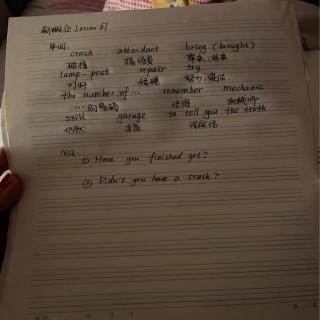 新概念 Lesson 87
单词:
crash attendant bring (brought)
碰撞 接待员 带来、送来
lamp-post repair try
灯杆 修理 努力,设法
the number of ... remember mechanic
...的号码 记得 机械师
still garage to tell you the truth
仍然 车库 说实话
句子:
① Have you finished yet?
② Didn't you have a crash?